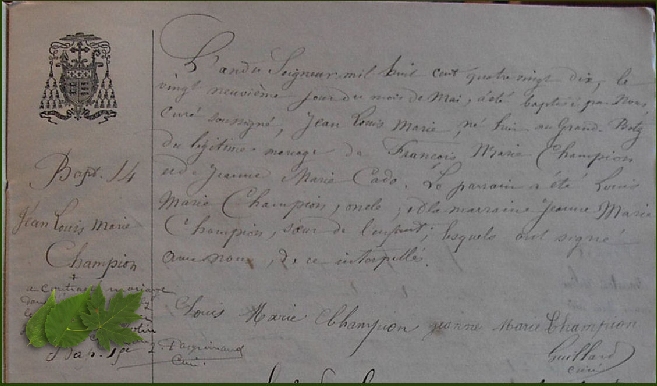 L'an du Seigneur mil huit cent quatre vingt dix, le
vingt neuvième jour du mois de Mai, a été baptisé par Nous,
curé soussigné, Jean Louis Marie, né hier au Grand
du légitime mariage de François Marie Champion
et de Jeanne Marie Cado. Le parrain a été Louis
Marie Champion, oncle, et la marraine Jeanne Marie
Champion, sœur de l'enfant; lesquels ont signé
avec nous, de ce interpellés.
Louis Marie Champion Jeanne Marie Champion
Guillard
curé
Bapt. 14
Jean Louis Marie
Champion
a contracté mariage